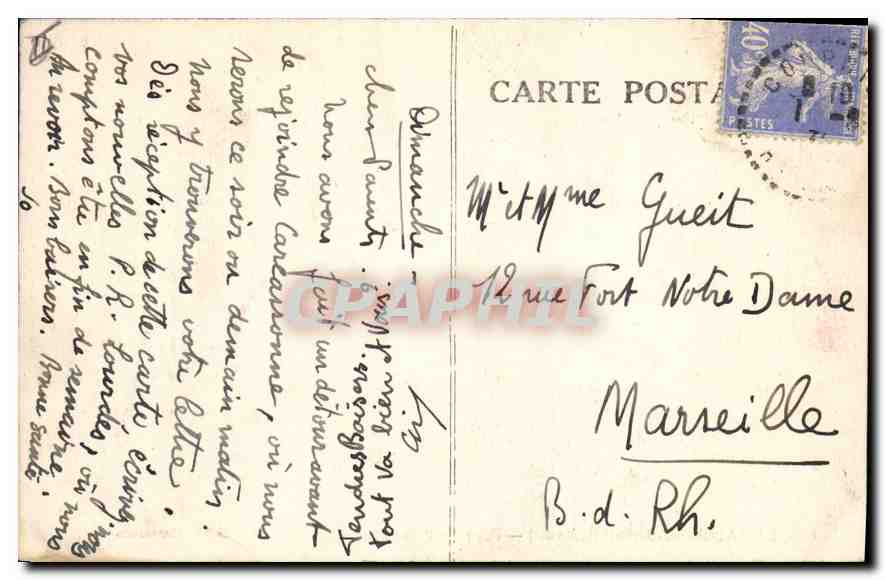 Dimanche
chers Parents.
Nous avons fait un détour avant
de rejoindre Carcassonne, où nous
serons ce soir ou demain matin.
Nous y trouverons votre lettre.
Dès réception de cette carte écrivez nous
vos nouvelles P. R. Lourdes, où nous
comptons être en fin de semaine.
Au revoir. Bons baisers. Bonne santé.
Jo
tout va bien
Tendres Baisers.
CARTE POSTA
40c
POSTES
Mr et Mme Gueit
12 rue Fort Notre Dame
Marseille
B. d. Rh.
CPAPHIL